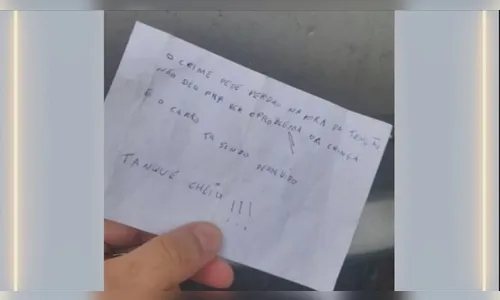 O CRIME PEDE PERDÃO NA HORA DA TENSÃO
NÃO DEU PRA VER O PROBLEMA DA CRIANÇA
E O CARRO
TA SENDO DEVOLVIDO
TANQUE CHEIO !!!